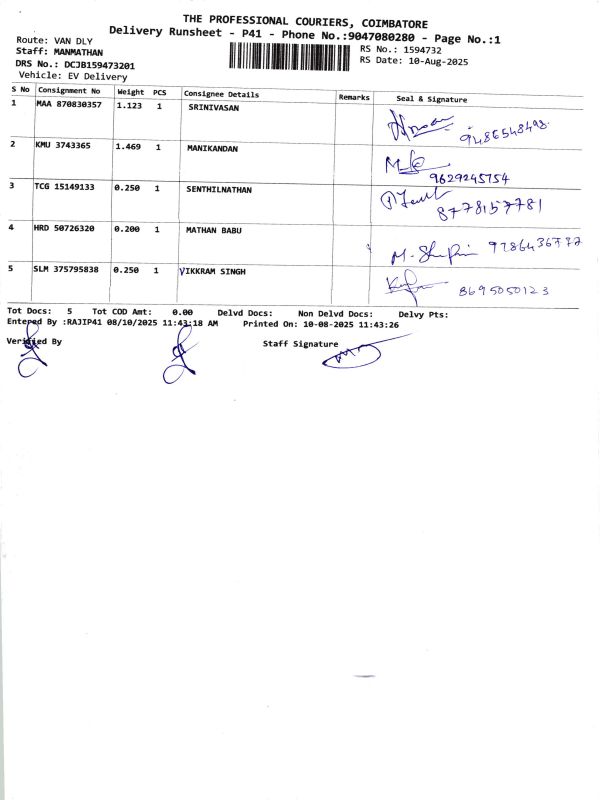 THE PROFESSIONAL COURIERS, COIMBATORE
Delivery Runsheet - P41 - Phone No.:9047080280 - Page No.:1
Route: VAN DLY
Staff: MANMATHAN
RS No.: 1594732
DRS No.: DCJB159473201
RS Date: 10-Aug-2025
Vehicle: EV Delivery
S No Consignment No Weight PCS Consignee Details Remarks Seal & Signature
1 MAA 870830357 1.123 1 SRINIVASAN
9486548498
2 KMU 3743365 1.469 1 MANIKANDAN
9629245754
3 TCG 15149133 0.250 1 SENTHILNATHAN
8778157781
4 HRD 50726320 0.200 1 MATHAN BABU
M.
5 SLM 375795838 0.250 1 VIKKRAM SINGH
8695050123
Tot Docs: 5 Tot COD Amt: 0.00 Delvd Docs: Non Delvd Docs: Delvy Pts:
Entered By :RAJIP41 08/10/2025 11:43:18 AM Printed On: 10-08-2025 11:43:26
Verified By Staff Signature